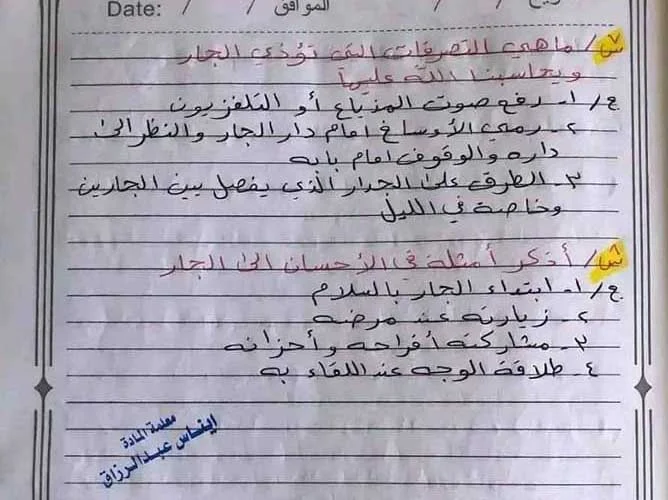 Date: / / الموافق / /
س/ ما هي التصرفات التي تؤذي الجار
ويحاسبنا الله عليها
ج/ ١- رفع صوت المذياع أو التلفزيون
٢- رمي الأوساخ امام دار الجار والنظر الى
داره والوقوف امام بابه
٣- الطرق على الجدار الذي يفصل بين الجارين
وخاصة في الليل
س/ أذكر أمثلة في الأحسان الى الجار
ج/ ١- ابتداء الجار بالسلام
٢- زيارته عند مرضه
٣- مشاركته أفراحه وأحزانه
٤- طلاقة الوجه عند اللقاء به
معلمة المادة
ايناس عبدالرزاق